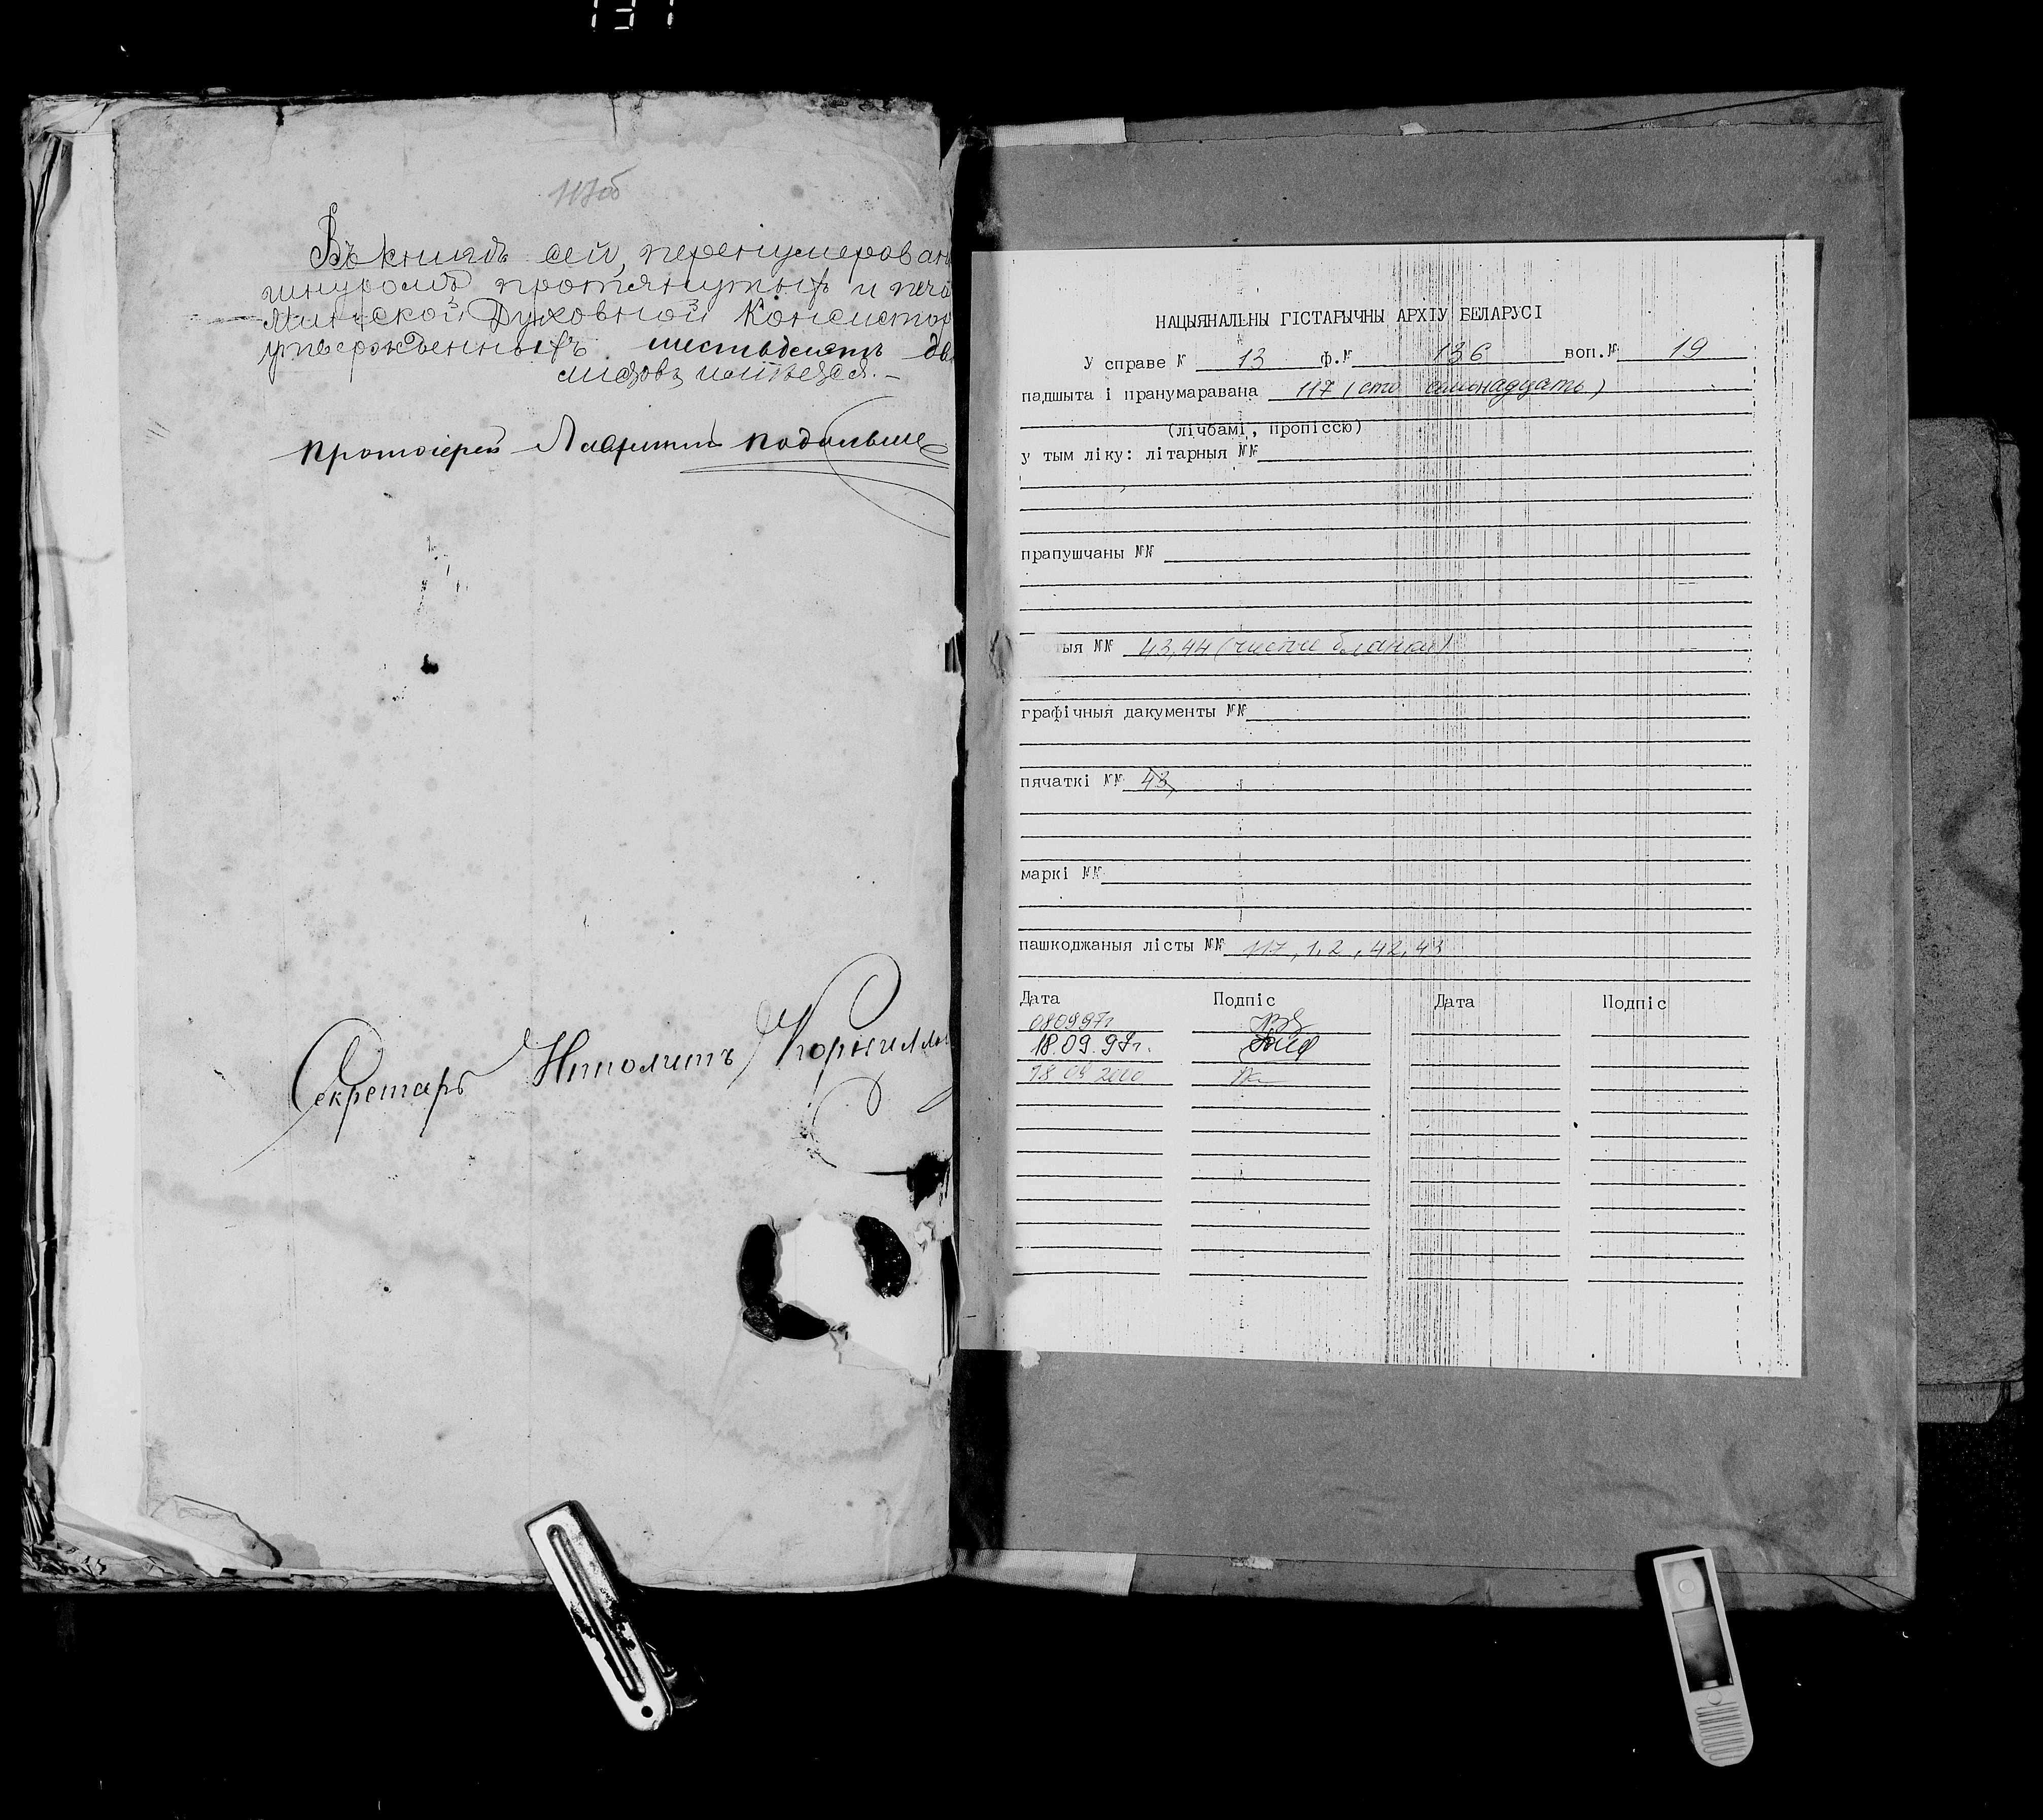 117об
Въ книгѣ сей, перенумерован
шнуромъ протянутыхъ и печа
Минской Духовной Консистор
утвержденныхъ шестьдесятъ дв
листовъ имѣется.—
Протоіерей Лаврентій Подольше
Секретарь Ипполитъ Корнилло
НАЦЫЯНАЛЬНЫ ГІСТАРЫЧНЫ АРХІЎ БЕЛАРУСІ
У справе № 13 ф.№ 136 воп.№ 19
падшыта і пранумаравана 117 (сто семнадцать)
(лічбамі, пропіссю)
у тым ліку: літарныя №№
прапушчаны №№
ыя №№ 43,44 (чистые бланки)
графічныя дакументы №№
пячаткі №№ 43,
маркі №№
пашкоджаныя лісты №№ 117, 1, 2, 42, 43
Дата Подпіс Дата Подпіс
080997г
18.09.97г.
18 09 2000